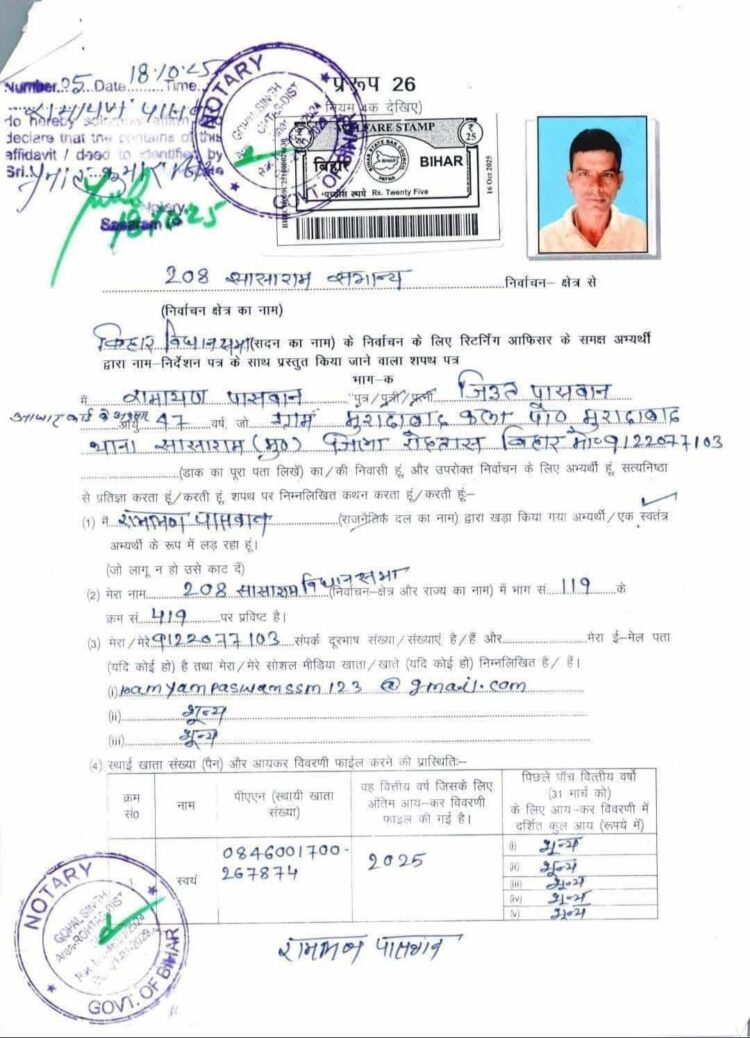 Number. 25. Date 18.10.25 Time
do hereby solemn affirm
declare that the contains of this
affidavit / deed to identified by
Sri.
Notary
Sasaram
18/10/25
NOTARY
GOPAL SINGH
GOVT. OF BIHAR
प्ररूप 26
(नियम 4क देखिए)
WELFARE STAMP
₹ 25
बिहार
BIHAR STATE BAR COUNCIL
PATNA
BIHAR
पच्चीस रूपये Rs. Twenty Five
16 Oct 2025
208 सासाराम सामान्य निर्वाचन– क्षेत्र से
(निर्वाचन क्षेत्र का नाम)
बिहार विधानसभा (सदन का नाम) के निर्वाचन के लिए रिटर्निंग आफिसर के समक्ष अभ्यर्थी
द्वारा नाम–निर्देशन पत्र के साथ प्रस्तुत किया जाने वाला शपथ पत्र
भाग–क
मैं रामायण पासवान पुत्र/पुत्री/पत्नी जिउत पासवान
आधार कार्ड के अनुसार आयु 47 वर्ष, जो ग्राम मुरादाबाद कला पो० मुरादाबाद
थाना सासाराम (मु०) जिला रोहतास बिहार मो०9122077103
(डाक का पूरा पता लिखें) का/की निवासी हूं, और उपरोक्त निर्वाचन के लिए अभ्यर्थी हूं, सत्यनिष्ठा
से प्रतिज्ञा करता हूं/करती हूं, शपथ पर निम्नलिखित कथन करता हूं/करती हूं:–
(1) मैं रामायण पासवान (राजनैतिक दल का नाम) द्वारा खड़ा किया गया अभ्यर्थी/एक स्वतंत्र
अभ्यर्थी के रूप में लड़ रहा हूं।
(जो लागू न हो उसे काट दें)
(2) मेरा नाम 208 सासाराम विधानसभा (निर्वाचन–क्षेत्र और राज्य का नाम) में भाग सं. 119 के
क्रम सं. 419 पर प्रविष्ट है।
(3) मेरा/मेरे 9122077103 संपर्क दूरभाष संख्या/संख्याएं है/हैं और मेरा ई–मेल पता
(यदि कोई हो) है तथा मेरा/मेरे सोशल मीडिया खाता/खाते (यदि कोई हो) निम्नलिखित है/ है।
(i) ramyampaswamssm123 @ gmail.com
(ii) शून्य
(iii) शून्य
(4) स्थाई खाता संख्या (पैन) और आयकर विवरणी फाईल करने की प्रास्थिति:–
क्रम सं० नाम पीएएन (स्थायी खाता संख्या) वह वित्तीय वर्ष जिसके लिए अंतिम आय–कर विवरणी फाईल की गई है। पिछले पाँच वित्तीय वर्षों (31 मार्च को) के लिए आय–कर विवरणी में दर्शित कुल आय (रूपये में)
स्वयं 0846001700-267874 2025
(i) शून्य
(ii) शून्य
(iii) शून्य
(iv) शून्य
(v) शून्य
रामायण पासवान
NOTARY
GOPAL SINGH
Area-ROHTAS-DIST
GOVT. OF BIHAR